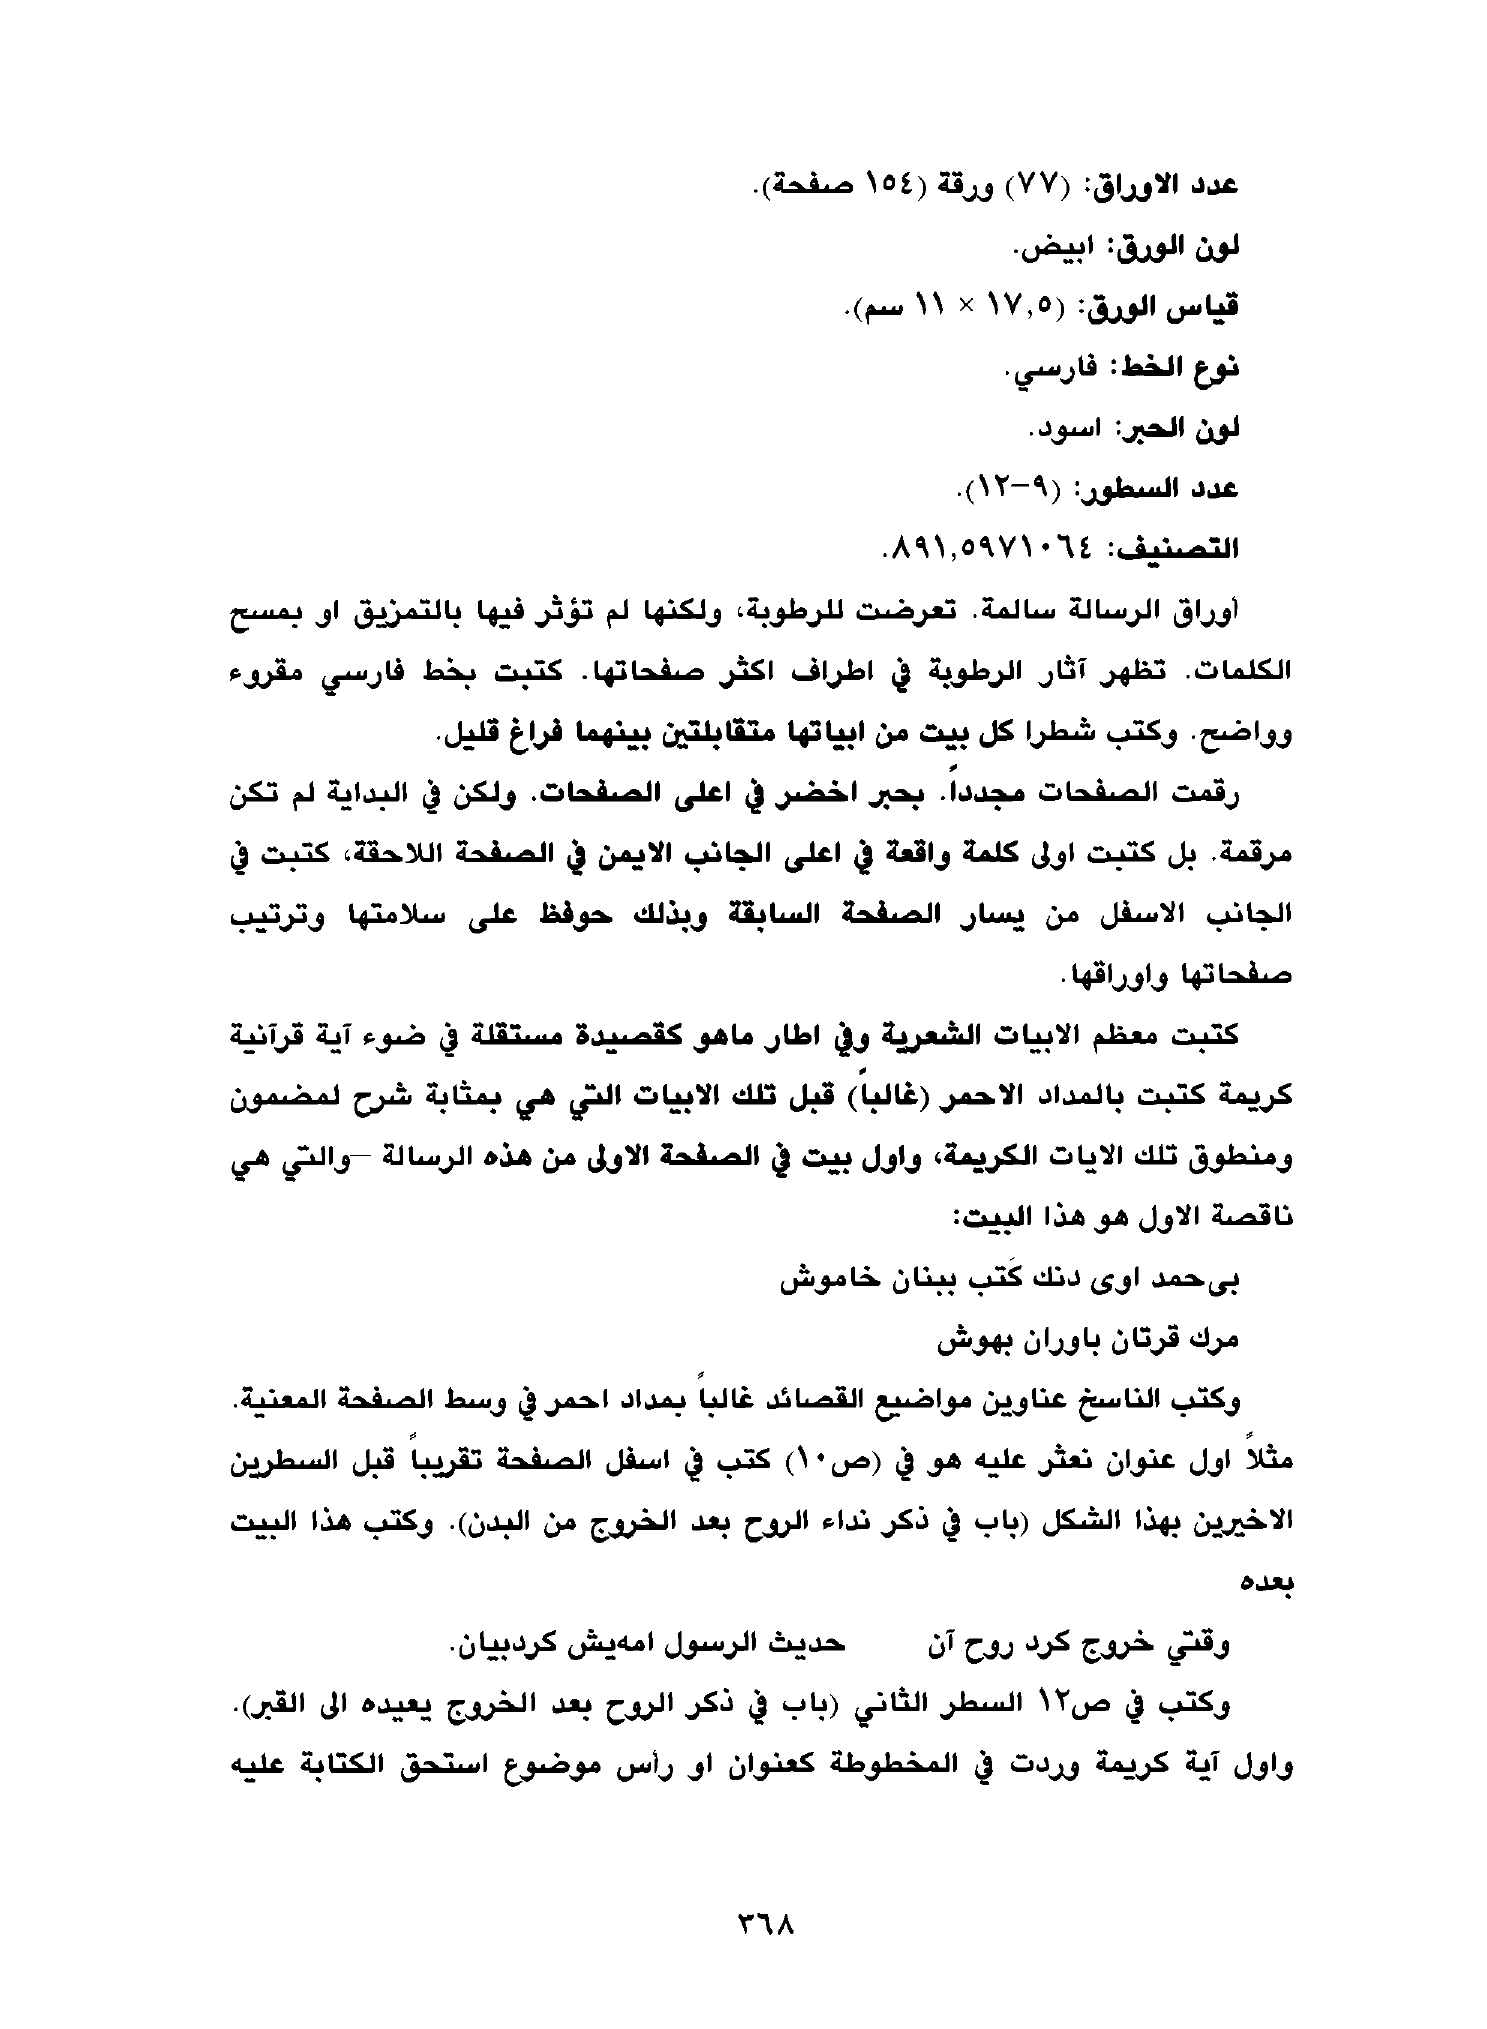 عدد الاوراق: (٧٧) ورقة (١٥٤ صفحة).
لون الورق: ابيض.
قياس الورق: (١٧,٥ × ١١ سم).
نوع الخط: فارسي.
لون الحبر: اسود.
عدد السطور: (٩-١٢).
التصنيف: ٨٩١,٥٩٧١٠٦٤.
أوراق الرسالة سالمة. تعرضت للرطوبة، ولكنها لم تؤثر فيها بالتمزيق او بمسح
الكلمات. تظهر آثار الرطوبة في اطراف اكثر صفحاتها. كتبت بخط فارسي مقروء
وواضح. وكتب شطرا كل بيت من ابياتها متقابلتين بينهما فراغ قليل.
رقمت الصفحات مجدداً. بحبر اخضر في اعلى الصفحات. ولكن في البداية لم تكن
مرقمة. بل كتبت اولى كلمة واقعة في اعلى الجانب الايمن في الصفحة اللاحقة، كتبت في
الجانب الاسفل من يسار الصفحة السابقة وبذلك حوفظ على سلامتها وترتيب
صفحاتها واوراقها.
كتبت معظم الابيات الشعرية وفي اطار ماهو كقصيدة مستقلة في ضوء آية قرآنية
كريمة كتبت بالمداد الاحمر (غالباً) قبل تلك الابيات التي هي بمثابة شرح لمضمون
ومنطوق تلك الايات الكريمة، واول بيت في الصفحة الاولى من هذه الرسالة –والتي هي
ناقصة الاول هو هذا البيت:
بی‌حمد اوی دنك كَتب ببنان خاموش
مرك قرتان باوران بهوش
وكتب الناسخ عناوين مواضيع القصائد غالباً بمداد احمر في وسط الصفحة المعنية.
مثلاً اول عنوان نعثر عليه هو في (ص١٠) كتب في اسفل الصفحة تقريباً قبل السطرين
الاخيرين بهذا الشكل (باب في ذكر نداء الروح بعد الخروج من البدن). وكتب هذا البيت
بعده
وقتي خروج كرد روح آن حديث الرسول امه‌یش كردبيان.
وكتب في ص١٢ السطر الثاني (باب في ذكر الروح بعد الخروج يعيده الى القبر).
واول آية كريمة وردت في المخطوطة كعنوان او رأس موضوع استحق الكتابة عليه
٣٦٨